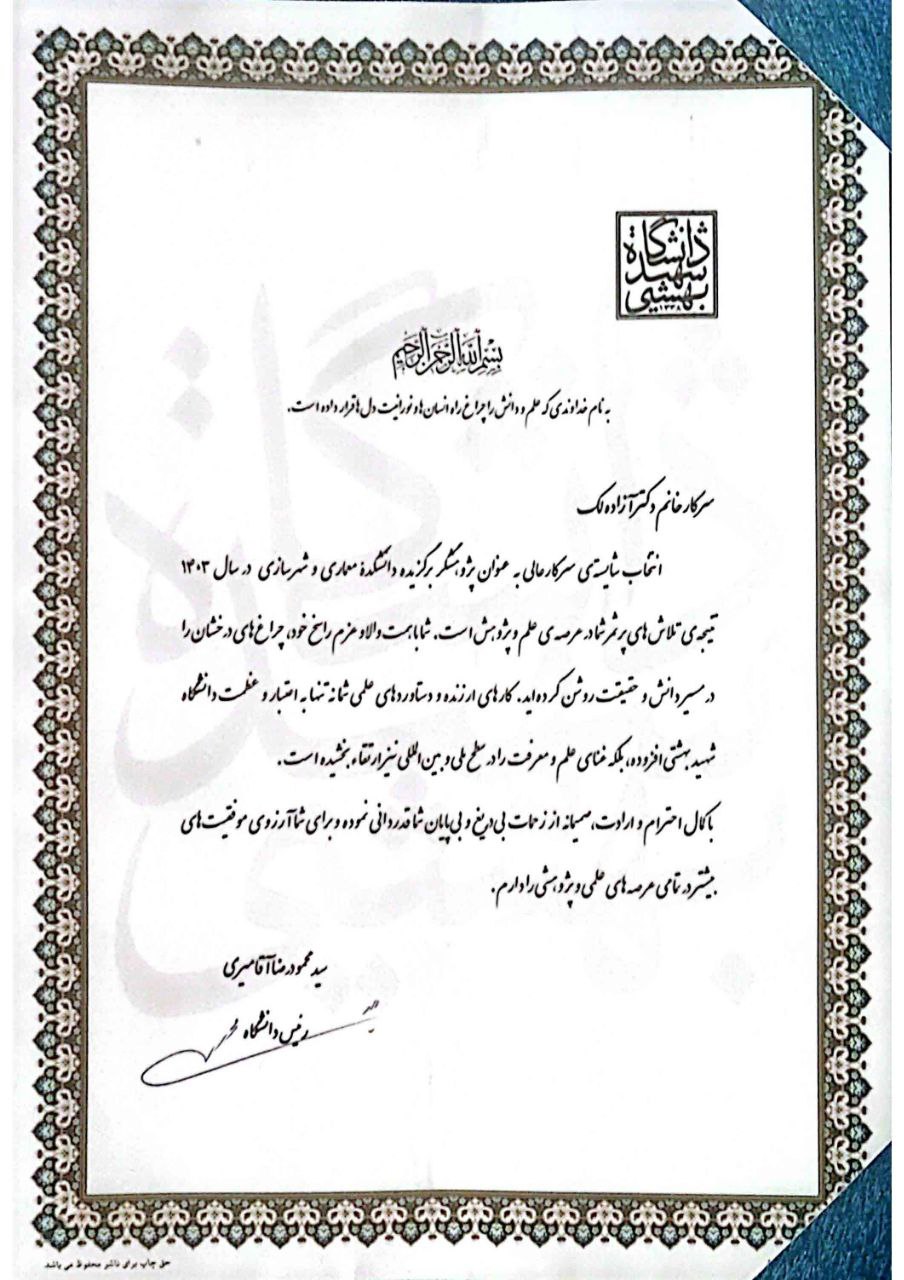 دانشگاه
شهید
بهشتی
۱۳۳۸
بسم الله الرحمن الرحیم
به نام خداوندی که علم و دانش را چراغ راه انسان ها و نورانیت دل ها قرار داده است.
سرکار خانم دکتر آزاده لک
انتخاب شایسته‌ی سرکار عالی به عنوان پژوهشگر برگزیده دانشکدهٔ معماری و شهرسازی در سال ۱۴۰۳
نتیجه‌ی تلاش های پرثمر شما در عرصه‌ی علم و پژوهش است. شما با همت والا و عزم راسخ خود، چراغ های درخشان را
در مسیر دانش و حقیقت روشن کرده اید. کارهای ارزنده و دستاوردهای علمی شما نه تنها به اعتبار و عظمت دانشگاه
شهید بهشتی افزوده، بلکه غنای علم و معرفت را در سطح ملی و بین المللی نیز ارتقاء بخشیده است.
با کمال احترام و ارادت، صمیمانه از زحمات بی دریغ و بی پایان شما قدردانی نموده و برای شما آرزوی موفقیت های
بیشتر در تمامی عرصه های علمی و پژوهشی را دارم.
سید محمودرضا آقامیری
رئیس دانشگاه
حق چاپ برای ناشر محفوظ می باشد